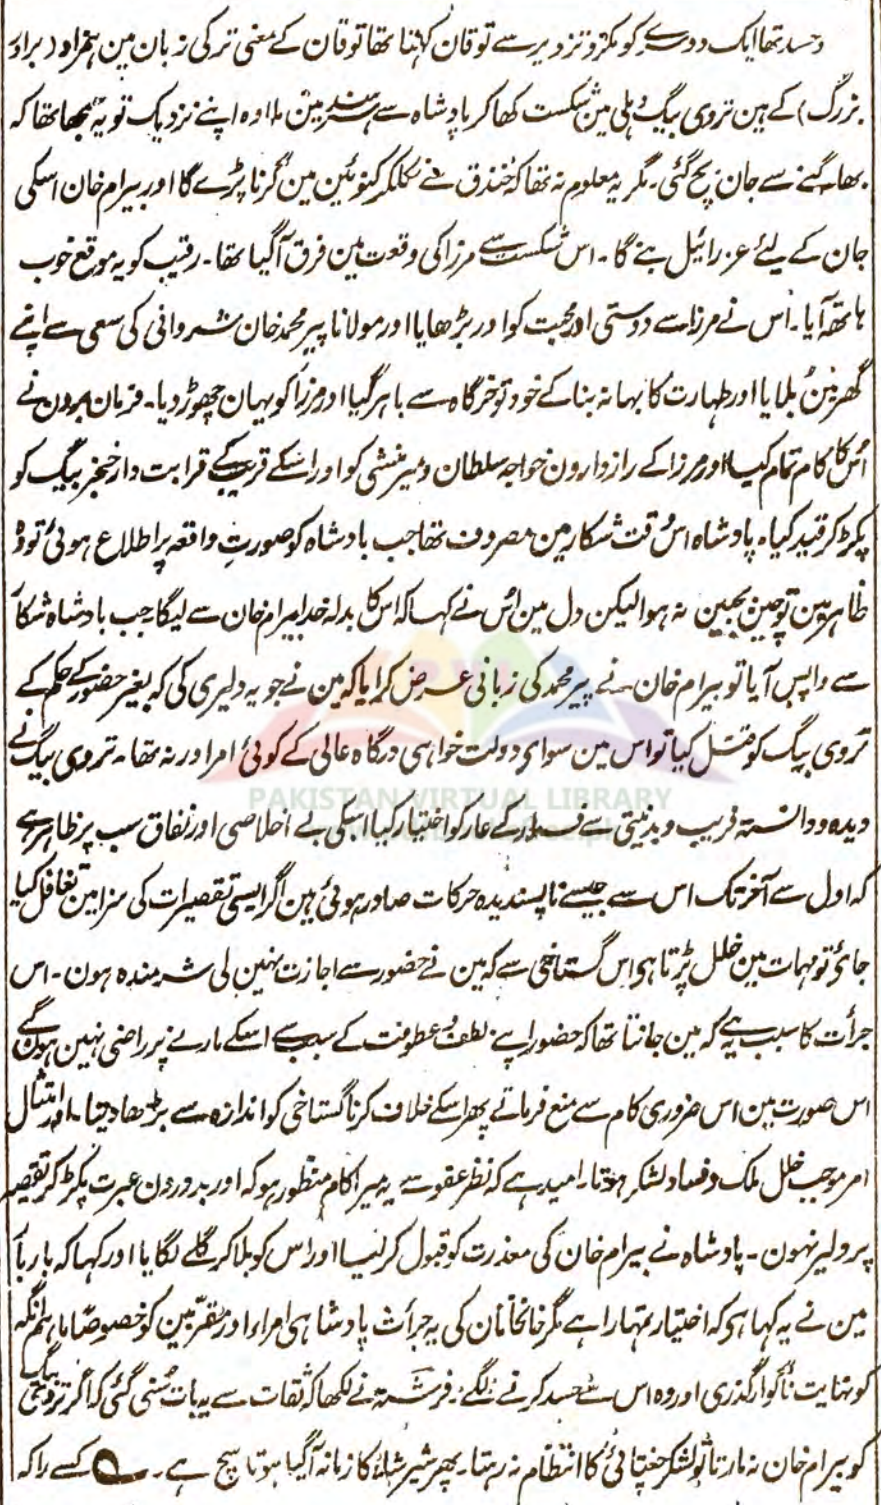 و حسد تھا ایک دوسرے کو مکر و تزویر سے توقان کہتا تھا توقان کے معنی ترکی زبان مین ہمزاد (برادر
بزرگ) کے ہین تروی بیگ دہلی مین شکست کھا کر بادشاہ سے سرہند مین ملا وہ اپنے نزدیک تو یہ سمجھا تھا کہ
بھاگنے سے جان بچ گئی۔ مگر یہ معلوم نہ تھا کہ خندق سے نکلکر کنوئین مین گرنا پڑے گا اور بیرام خان اسکی
جان کے لئے عزرائیل بنے گا۔ اس شکست سے مرزا کی وقعت مین فرق آگیا تھا۔ رقیب کو یہ موقع خوب
ہاتھ آیا۔ اُس نے مرزا سے دوستی اور محبت کو اور بڑھایا اور مولانا پیر محمد خان شروانی کی سعی سے اپنے
گھر مین بلایا اور طہارت کا بہانہ بنا کے خود تو خرگاہ سے باہر گیا اور مرزا کو یہان چھوڑ دیا۔ فرمان برون نے
اُس کا کام تمام کیا اور مرزا کے رازدارون خواجہ سلطان و میر منشی کو اور اسکے قریب کے قرابت دار خنجر بیگ کو
پکڑ کر قید کیا۔ پادشاہ اس وقت شکار مین مصروف تھا جب بادشاہ کو صورتِ واقعہ پر اطلاع ہوئی تو وہ
ظاہر مین تو چین بجبین نہ ہوا لیکن دل مین اُس نے کہا کہ اس کا بدلہ خدا بیرام خان سے لیگا۔ جب بادشاہ شکار
سے واپس آیا تو بیرام خان نے پیر محمد کی زبانی عرض کرایا کہ مین نے جو یہ دلیری کی کہ بغیر حضور کے حکم کے
تروی بیگ کو قتل کیا تو اس مین سوای دولت خواہی درگاہ عالی کے کوئی امر اور نہ تھا۔ تروی بیگ نے
دیدہ و دانستہ فریب و بدنیتی سے فرار کے عار کو اختیار کیا اسکی بے اخلاصی اور نفاق سب پر ظاہر ہے
کہ اول سے آخر تک اس سے جیسے ناپسندیدہ حرکات صادر ہوئی ہین اگر ایسی تقصیرات کی سزا مین تغافل کیا
جائے تو مہمات مین خلل پڑتا ہی اس گستاخی سے کہ مین نے حضور سے اجازت نہین لی شرمندہ ہون۔ اس
جرأت کا سبب یہ ہے کہ مین جانتا تھا کہ حضور اپنے لطف و عطوفت کے سبب سے اسکے مارنے پر راضی نہین ہون گے
اس صورت مین اس ضروری کام سے منع فرماتے پھر اسکے خلاف کرنا گستاخی کو اندازہ سے بڑھا دیتا۔ اور امتثال
امر موجب خلل ملک و فساد لشکر ہوتا۔ امید ہے کہ نظر عفو سے یہ میرا کام منظور ہو کہ اور بدورون عبرت پکڑ کر تقصیر
پر دلیر نہون۔ پادشاہ نے بیرام خان کی معذرت کو قبول کر لیا اور اس کو بلا کر گلے لگایا اور کہا کہ بار بار
مین نے یہ کہا ہی کہ اختیار تمہارا ہے مگر خانخانان کی یہ جرأت پادشاہی امرا اور مقربین کو خصوصاً ماہم انگہ
کو نہایت ناگوار گذری اور وہ اس سے حسد کرنے لگے۔ فرشتہ نے لکھا کہ ثقات سے یہ بات سُنی گئی کہ اگر تروی بیگ
کو بیرام خان نہ مارتا تو لشکر چغتائی کا انتظام نہ رہتا۔ پھر شیر شاہ کا زمانہ آگیا ہوتا سچ ہے۔ کسے را کہ
PAKISTAN VIRTUAL LIBRARY